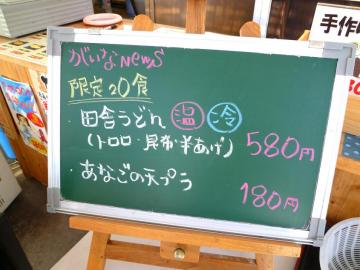 がいなNewS
限定20食
・田舎うどん 温 冷
(トロロ・昆布・半あげ) 580円
・あなごの天プラ
180円
手作